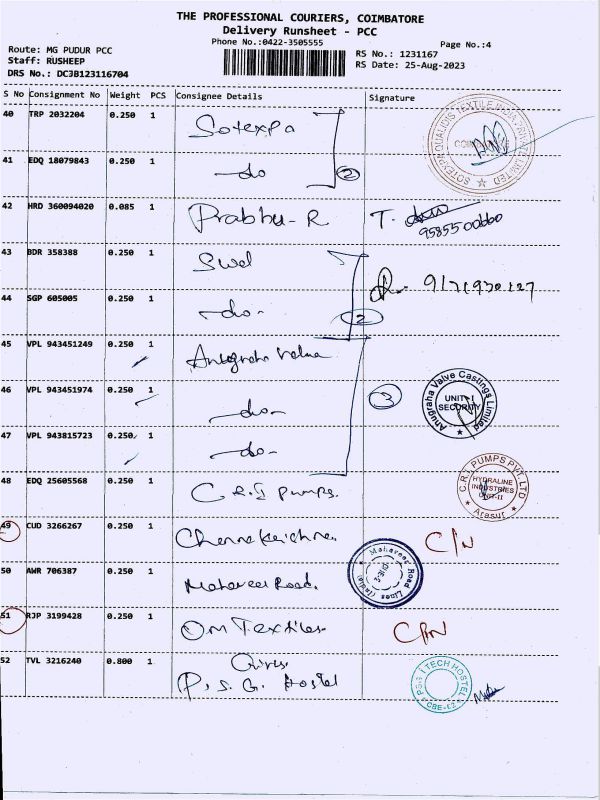 THE PROFESSIONAL COURIERS, COIMBATORE
Delivery Runsheet - PCC
Phone No.:0422-3505555
Page No.:4
Route: MG PUDUR PCC
Staff: RUSHEEP
DRS No.: DC3B123116704
RS No.: 1231167
RS Date: 25-Aug-2023
S No Consignment No Weight PCS Consignee Details Signature
40 TRP 2032204 0.250 1 Sotexpa
41 EDQ 18079843 0.250 1 -do 2
42 HRD 360094020 0.085 1 Prabhu-R T.
9585500660
43 BDR 358388 0.250 1 Swd
44 SGP 605005 0.250 1 -do- 2
45 VPL 943451249 0.250 1 Anugraha Valve
46 VPL 943451974 0.250 1 -do- 3
Anugraha Valve Castings Limited
UNIT-I
SECURITY
47 VPL 943815723 0.250 1 -do-
48 EDQ 25605568 0.250 1 C.R.I Pumps.
C.R.I. PUMPS PVT. LTD
HYDRALINE
INDUSTRIES
UNIT-II
Arasur
49 CUD 3266267 0.250 1 Chennakrishna C/N
50 AWR 706387 0.250 1 Mahaveer Road.
Mahaveer Road Lines (India)
51 RJP 3199428 0.250 1 OM Textiles C/N
52 TVL 3216240 0.800 1 Girls
P.S.G. Hostel
P.S.G. I TECH HOSTEL
CBE-62